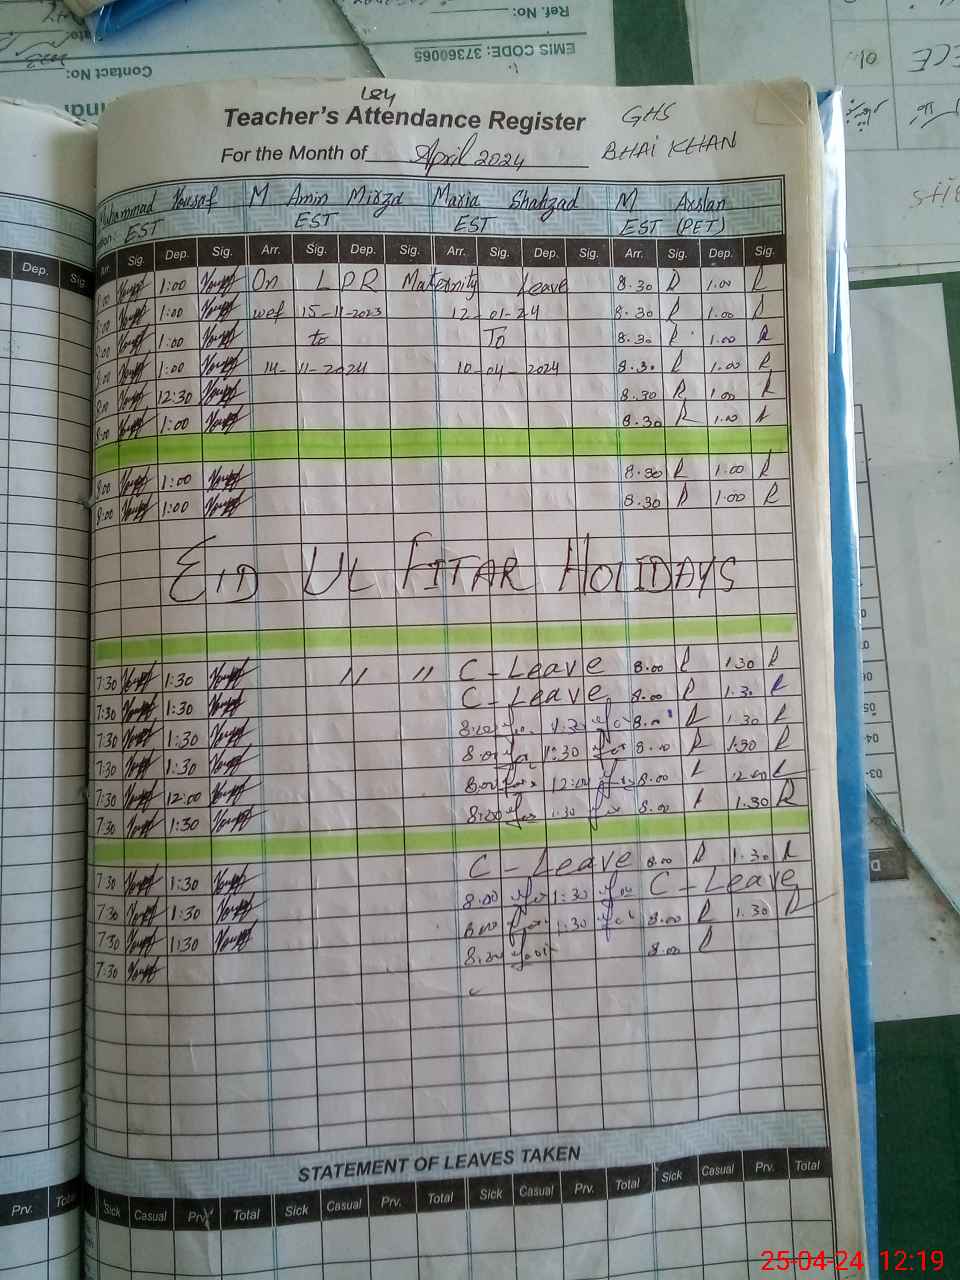 Ref. No:
EMIS CODE: 37360065
Contact No:
ECE
Teacher's Attendance Register
GHS
For the Month of April 2024 BHAI KHAN
Muhammad Yousaf M Amin Mirza Maria Shahzad M Arslan
EST EST EST EST (PET)
Dep. Sig. Arr. Sig. Dep. Sig. Arr. Sig. Dep. Sig. Arr. Sig. Dep. Sig. Arr. Sig. Dep. Sig.
8:00 1:00 On LPR Maternity Leave 8.30 R 1.00 R
8:00 1:00 wef 15-11-2023 12-01-24 8.30 R 1.00 R
8:00 1:00 to To 8.30 R 1.00 R
8:00 1:00 14-11-2024 10-04-2024 8.30 R 1.00 R
8:00 12:30 8.30 R 1.00 R
8:00 1:00 8.30 R 1.00 R
8:00 1:00 8.30 R 1.00 R
8:00 1:00 8.30 R 1.00 R
EID UL FITAR HOLIDAYS
7:30 1:30 " " C-Leave 8.00 R 1.30 R
7:30 1:30 C-Leave 8.00 R 1.30 R
7:30 1:30 8.00 1:30 8.00 R 1.30 R
7:30 1:30 8.00 1:30 8.00 R 1.30 R
7:30 12:00 8.00 12:00 8.00 R 12.00 R
7:30 1:30 8:00 1:30 8.00 R 1.30 R
7:30 1:30 C-Leave 8.00 R 1.30 R
7:30 1:30 8.00 1:30 C-Leave
7:30 1:30 8.00 1:30 8.00 R 1.30 R
7:30 8.00 8.00 R
STATEMENT OF LEAVES TAKEN
Prv. Total Sick Casual Prv. Total Sick Casual Prv. Total Sick Casual Prv. Total Sick Casual Prv. Total
25-04-24 12:19